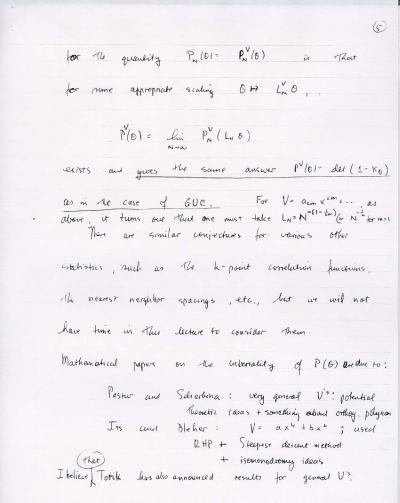 (5)
for the quantity P_N(θ) = P_N^V(θ) is that
for some appropriate scaling θ ↦ L_N^V θ, . .
P^V(θ) = lim_{N→∞} P_N^V(L_N θ)
exists and gives the same answer P^V(θ) = det(1 - K_θ)
as in the case of GUE. For V = a_{2m} x^{2m} + ..., as
above, it turns out that one must take L_N = N^{-(1-1/2m)} (= N^{-1/2} for m=1
There are similar conjectures for various other
statistics, such as the k-point correlation functions,
the nearest neighbor spacings, etc., but we will not
have time in this lecture to consider them.
Mathematical papers on the universality of P(θ) are due to:
Pastur and Scherbina : very general V's: potential
theoretic ideas + something about orthog. polynom
Its and Bleher : V = ax^4 + bx^2 ; used
RHP + Steepest descent method
+ isomonodromy ideas
I believe that Totik has also announced results for general V's.